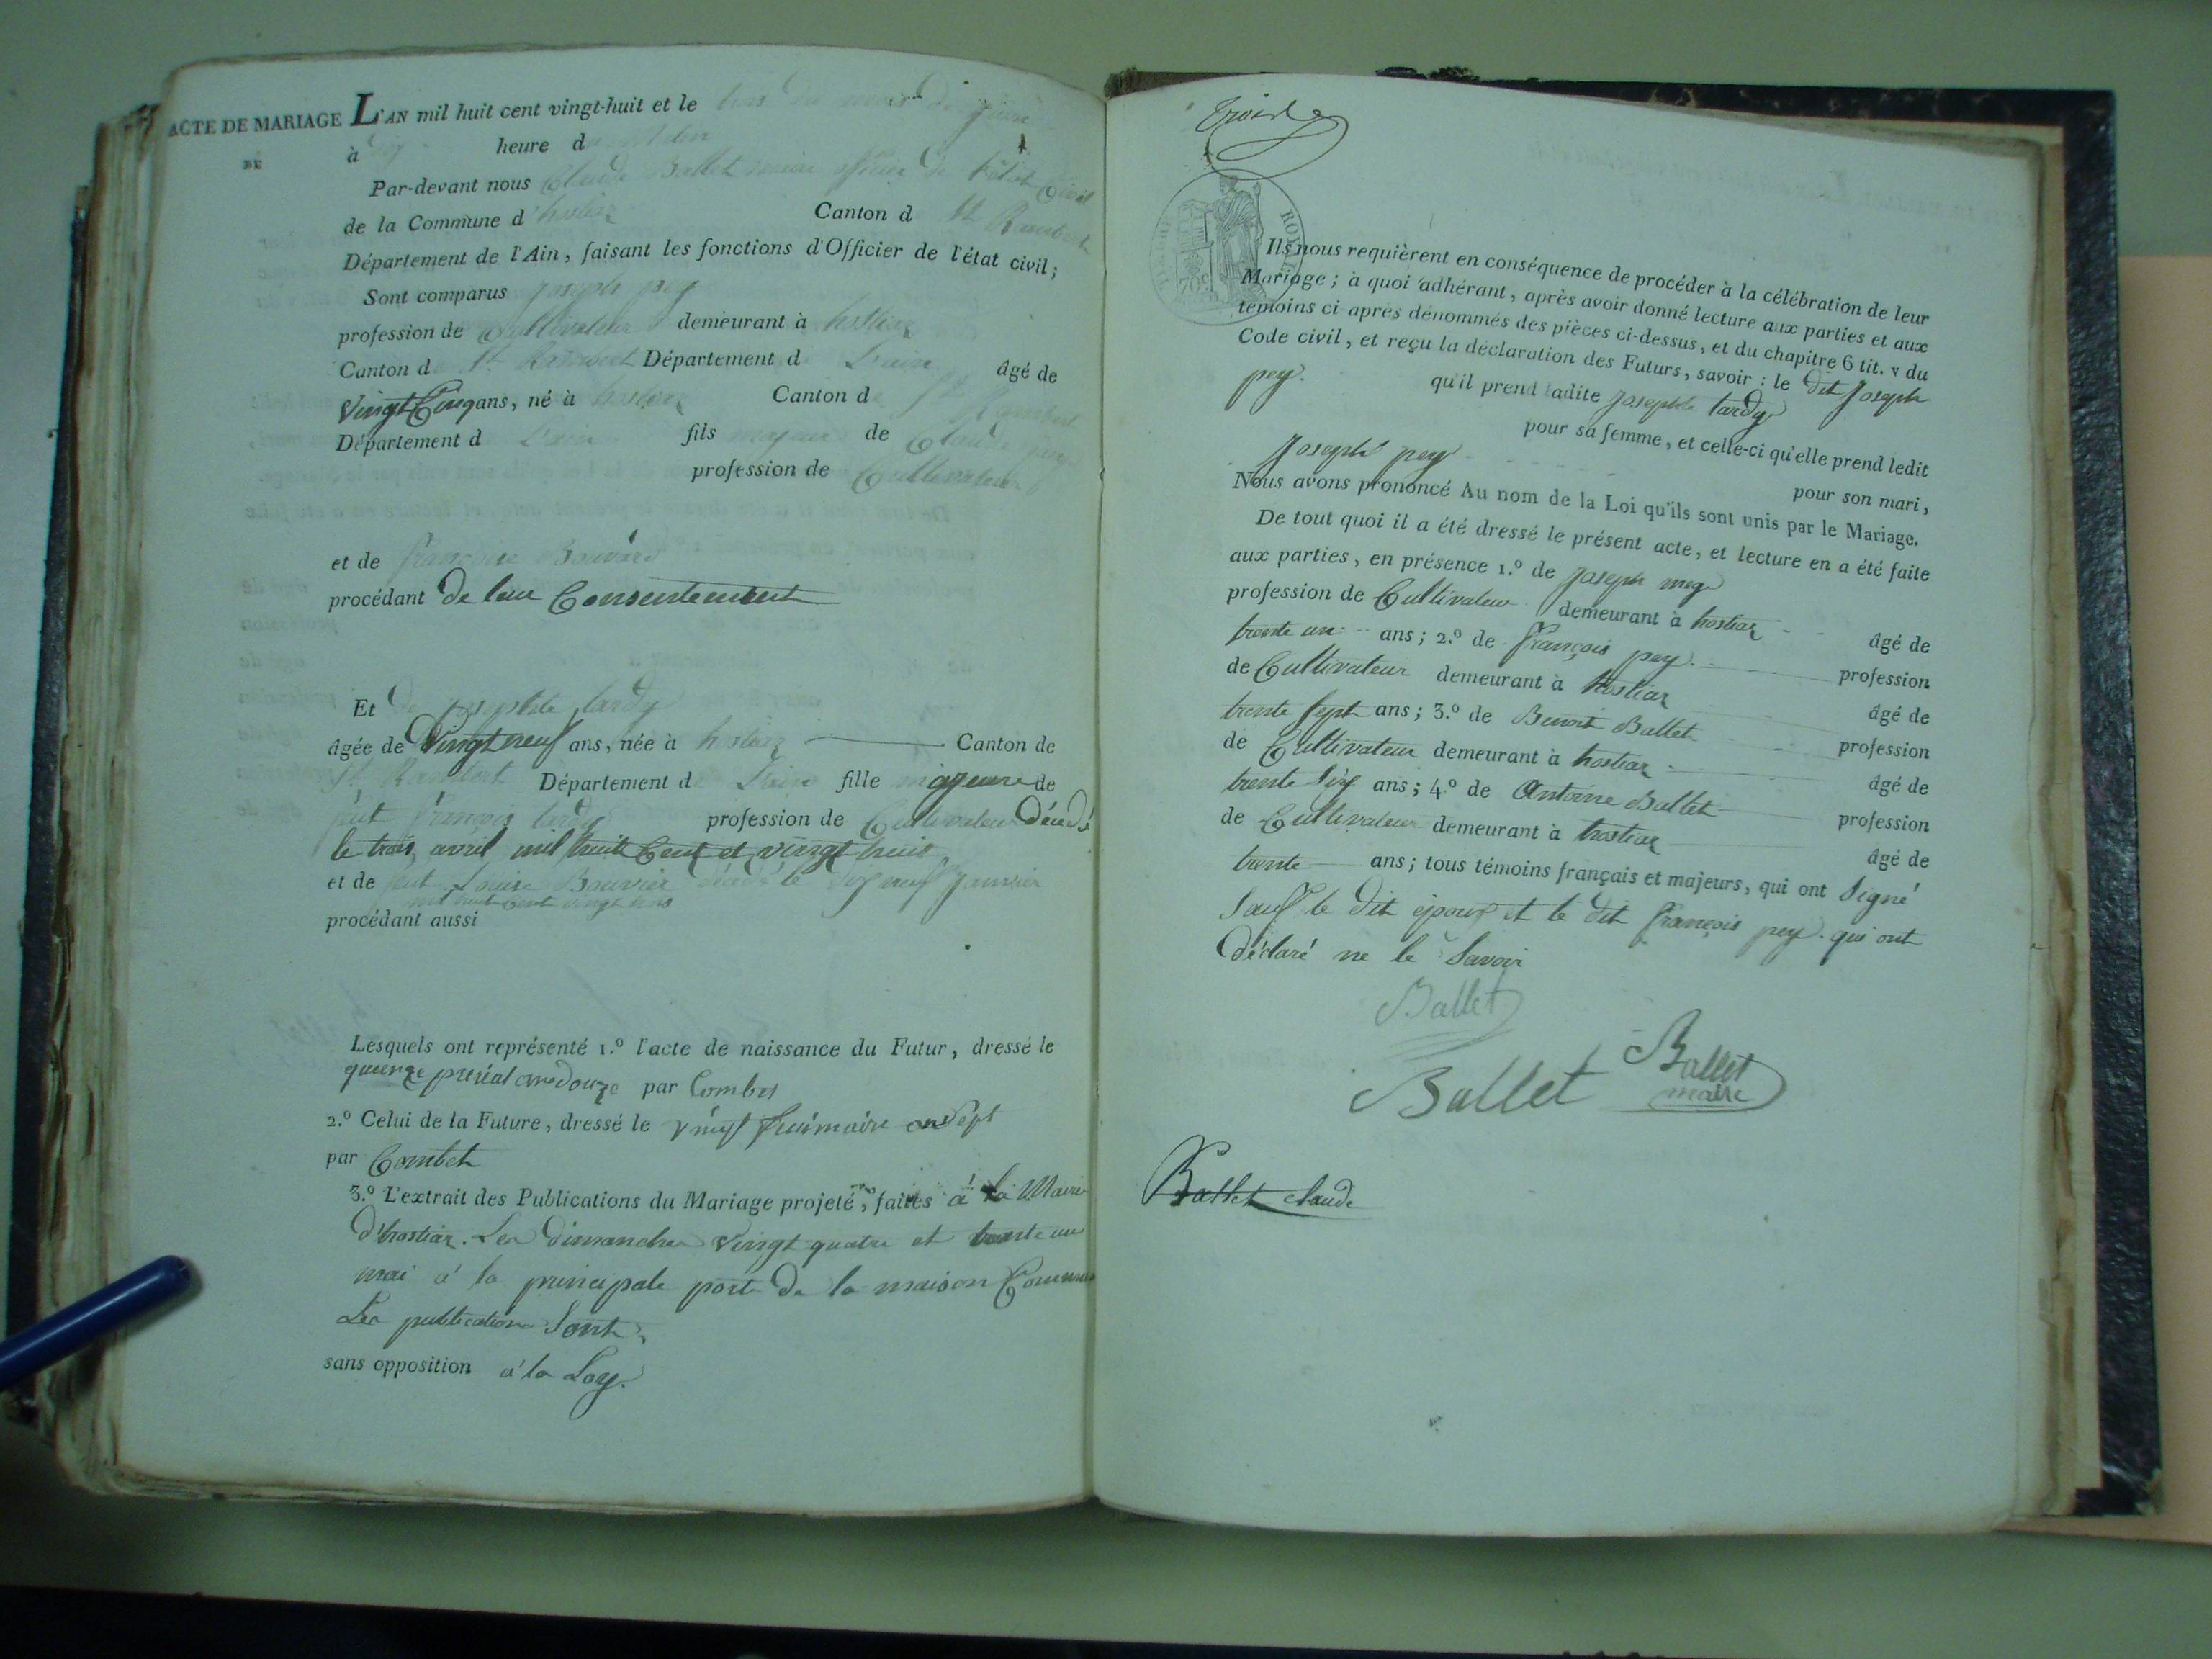 ACTE DE MARIAGE L'AN mil huit cent vingt-huit et le trois du mois de juin
DE à heure d
Par-devant nous Claude Ballet maire officier de l'état Civil
de la Commune d'hostiaz Canton d St Rambert
Département de l'Ain, faisant les fonctions d'Officier de l'état civil;
Sont comparus joseph pey
profession de Cultivateur demeurant à hostiaz
Canton de St Rambert Département de Lain âgé de
Vingt Cinq ans, né à hostiaz Canton de St Rambert
Département d Lain fils majeur de Claude pey
profession de Cultivateur
et de françoise Bouvard
procédant de leur Consentement
Et De josephte tardy
âgée de Vingt neuf ans, née à hostiaz Canton de
St Rambert Département de Lain fille majeure de
feut françois tardy profession de Cultivateur Décédé
le trois avril mil huit Cent et vingt
et de feut Louise Bouvier décédé le dix neuf janvier
mil huit cent vingt trois
procédant aussi
Lesquels ont représenté 1.º l'acte de naissance du Futur, dressé le
quinze preréal an douze par Combet
2.º Celui de la Future, dressé le vingt frimaire an Sept
par Combet
3.º L'extrait des Publications du Mariage projeté, faites à la Mairie
d'hostiaz. Les dimanches vingt quatre et trente un
mai à la principale porte de la maison Commune
Les publications Sont
sans opposition à la Loy.
trois
TIMBRE ROYAL
Ils nous requièrent en conséquence de procéder à la célébration de leur
Mariage; à quoi adhérant, après avoir donné lecture aux parties et aux
témoins ci après dénommés des pièces ci-dessus, et du chapitre 6 tit. v du
Code civil, et reçu la déclaration des Futurs, savoir: le dit joseph
pey. qu'il prend ladite josephte tardy
pour sa femme, et celle-ci qu'elle prend ledit
joseph pey pour son mari,
Nous avons prononcé Au nom de la Loi qu'ils sont unis par le Mariage.
De tout quoi il a été dressé le présent acte, et lecture en a été faite
aux parties, en présence 1.º de joseph
profession de Cultivateur demeurant à hostiaz âgé de
trente un ans; 2.º de françois pey profession
de Cultivateur demeurant à hostiaz âgé de
trente Sept ans; 3.º de Benoit Ballet profession
de Cultivateur demeurant à hostiaz âgé de
trente Six ans; 4.º de Antoine Ballet profession
de Cultivateur demeurant à hostiaz âgé de
trente ans; tous témoins français et majeurs, qui ont Signé
Sauf le dit époux et le dit françois pey. qui ont
Déclaré ne le Savoir
Ballet
Ballet Ballet
maire
Ballet claude